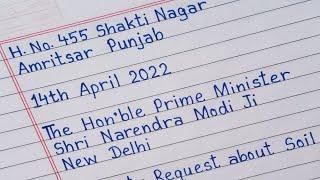 H. No. 455 Shakti Nagar
Amritsar Punjab
14th April 2022
The Hon'ble Prime Minister
Shri Narendra Modi Ji
New Delhi
Request about Soil